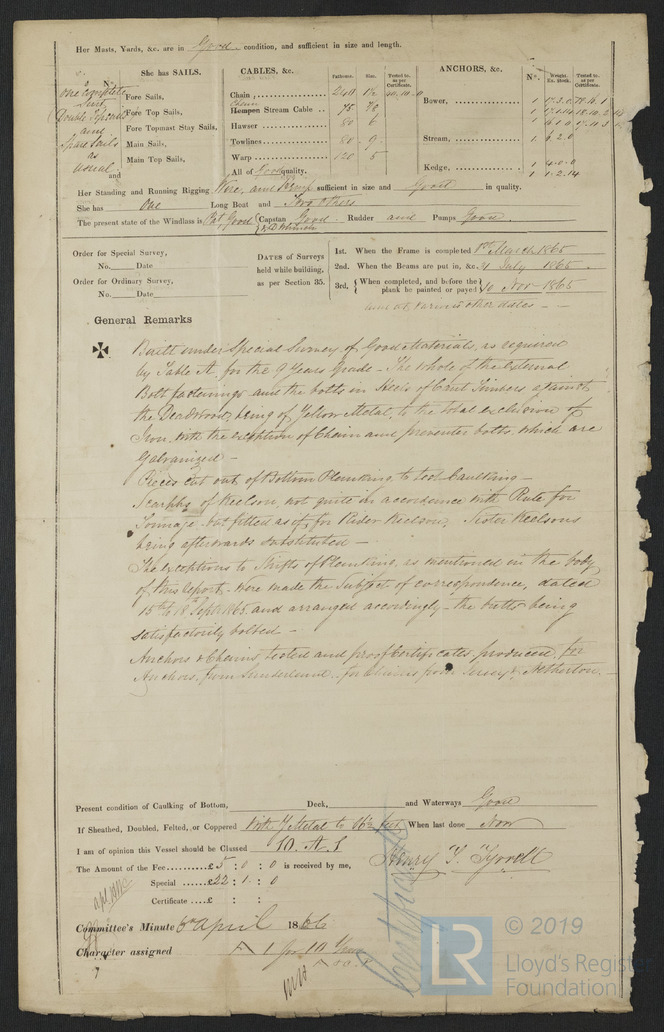 Her Masts, Yards, &c. are in Good condition, and sufficient in size and length.
She has SAILS.
CABLES, &c.
Fathoms. Size. Tested to, as per Certificate.
ANCHORS, &c.
Nº. Weight. Ex. Stock. Tested to, as per Certificate.
Nº
one complete
Suit
Double Topsails
and
Spare Sails
as
usual
and
Fore Sails,
Fore Top Sails,
Fore Topmast Stay Sails,
Main Sails,
Main Top Sails,
Chain 240 1½
Hempen Stream Cable 75
Hawser 80 6
Towlines 80 9
Warp 120 5
All of Good quality.
Bower,
Stream, 1 6 2 0
Kedge, 1 4 0 0
1 1 2 14
Her Standing and Running Rigging Wire, and Hemp sufficient in size and Good in quality.
She has One Long Boat and Two others
The present state of the Windlass is Pat, Good Capstan Good Rudder and Pumps Good.
Order for Special Survey,
No. Date
Order for Ordinary Survey,
No. Date
DATES of Surveys
held while building,
as per Section 35.
1st. When the Frame is completed 1st March 1865
2nd. When the Beams are put in, &c. 21 July 1865
3rd, When completed, and before the plank be painted or payed 10 Nov 1865
and at various other dates
General Remarks
Built under Special Survey, of Good Materials, as required
by Table A. for the 9 Years Grade - The whole of the External
Bolt fastenings and the bolts in Heels of Cant Timbers against
the Deadwood, being of Yellow Metal, to the total exclusion of
Iron, with the exception of Chain and preventer bolts, which are
Galvanized -
Pieces cut out of Bottom Planking to test Caulking -
Scarphs of Keelson, not quite in accordance with Rule for
Tonnage - but fitted as if, for Rider Keelson, Sister Keelsons
being afterwards substituted -
The exceptions to Shifts of Planking, as mentioned in the body
of this Report, were made the Subject of correspondence, dated
15th & 18th Sept 1865 and arranged accordingly - the butts being
satisfactorily bolted -
Anchors & Chains tested and proof Certificates produced, for
Anchors, from Sunderland - for Chains from & Netherton -
Present condition of Caulking of Bottom, Deck, and Waterways Good
If Sheathed, Doubled, Felted, or Coppered With Y Metal to 16½ feet When last done Now
I am of opinion this Vessel should be Classed 10. A. 1
The Amount of the Fee £5 : 0 : 0 is received by me, Henry T. Tyrrell
Special £22 : 1 : 0
Certificate £ : :
Committee's Minute 6 April 1866
Character assigned A 1 for 10 Years
Certificate
LR © 2019
Lloyd's Register
Foundation